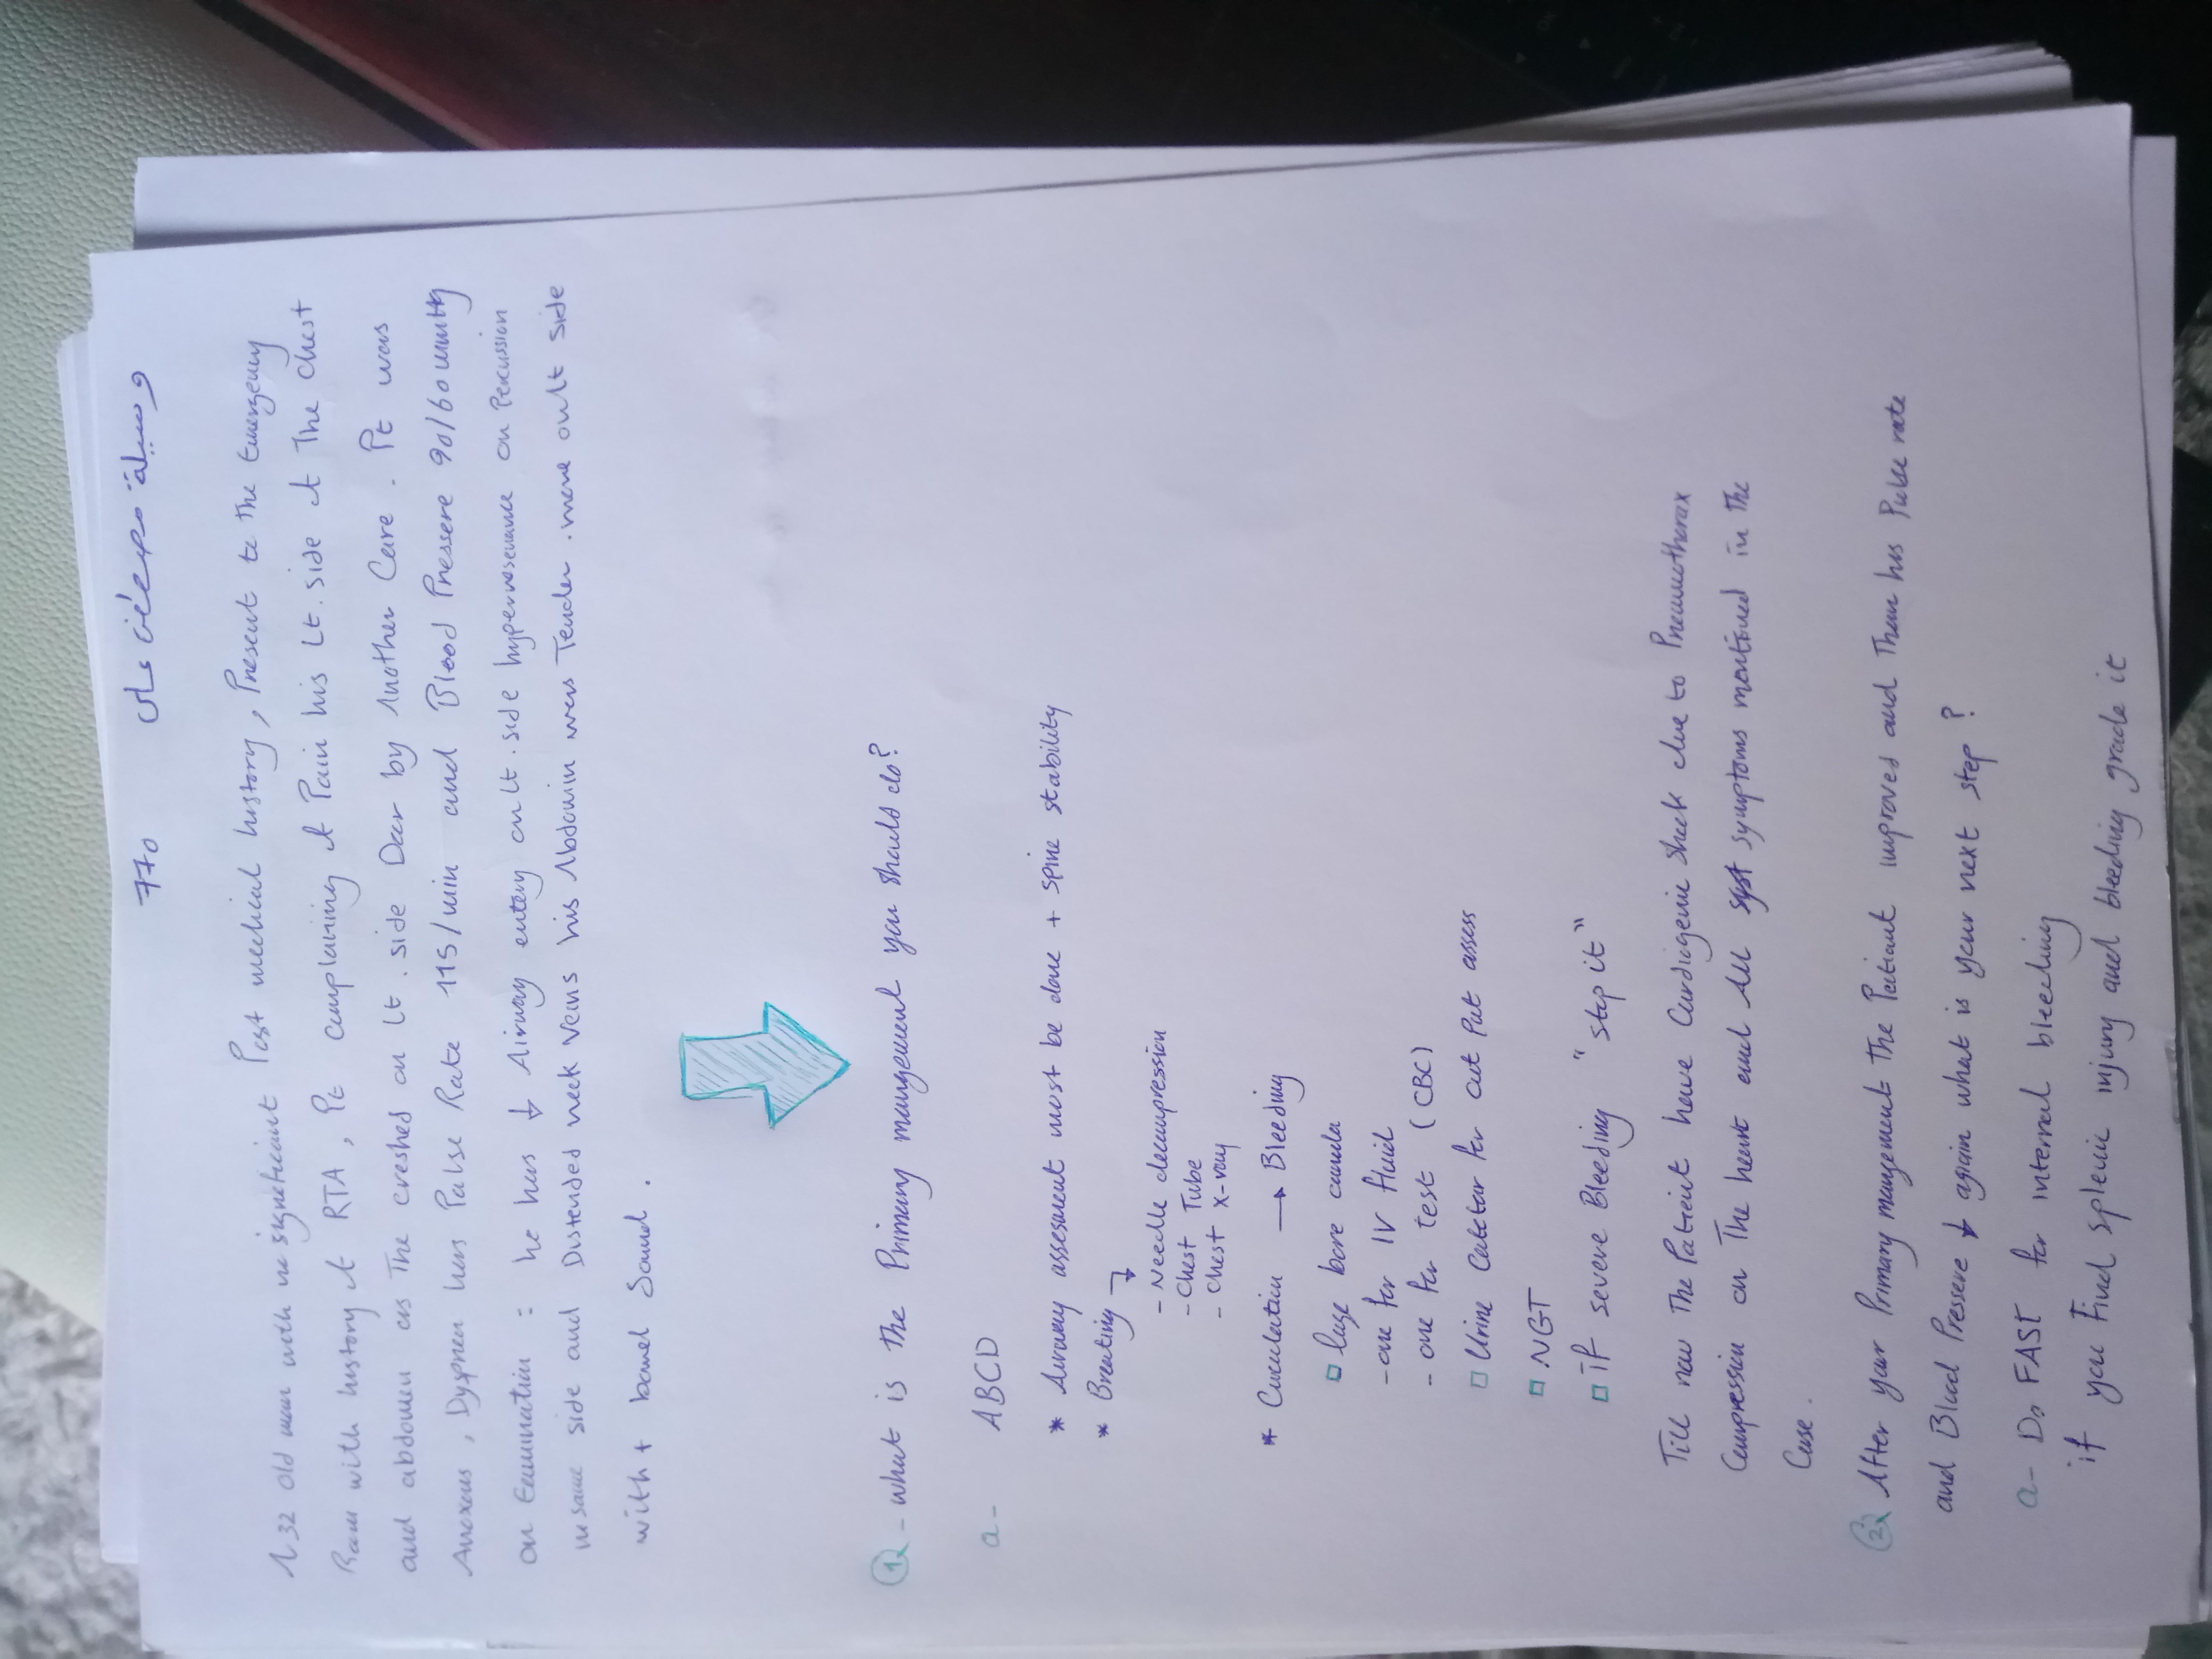 770
A 32 old man with no significant Past medical history, Present to the Emergency
Room with history of RTA, Pt complaining of Pain his Lt. side of The chest
and abdomen as The creshed on Lt. side Door by Another Care. Pt was
Anoxous, Dyspnea hers Pulse Rate 115/min and Blood Pressere 90/60 mmHg
on Examination : he has ↓ Airway entery on Lt. side hyperresonance on Percussion
in same side and Distended neck veins his Abdomin wers Tender. more on Lt side
with + bowel Sound.
1Q - what is the Primary mangement you should do?
a- ABCD
* Airway assesment most be done + spine stability
* Breating ↴
- Needle decompression
- Chest Tube
- Chest X-ray
* Circulation → Bleeding
□ large bore canula
- one for IV fluid
- one for test (CBC)
□ Urine Catetar for out Put asses
□ NGT
□ if severe Bleeding "stop it"
Till now The Patient have Cardiogenic Shock due to Pneumothorax
Compression on The heart and All symptoms mentioned in The
Case.
2Q After your Primary mangement The Patient improved and Then his Pulse rate
and Blood Pressere ↓ again what is your next step ?
a- Do FAST for internal bleeding
if you Find splenic injury and bleeding grade it